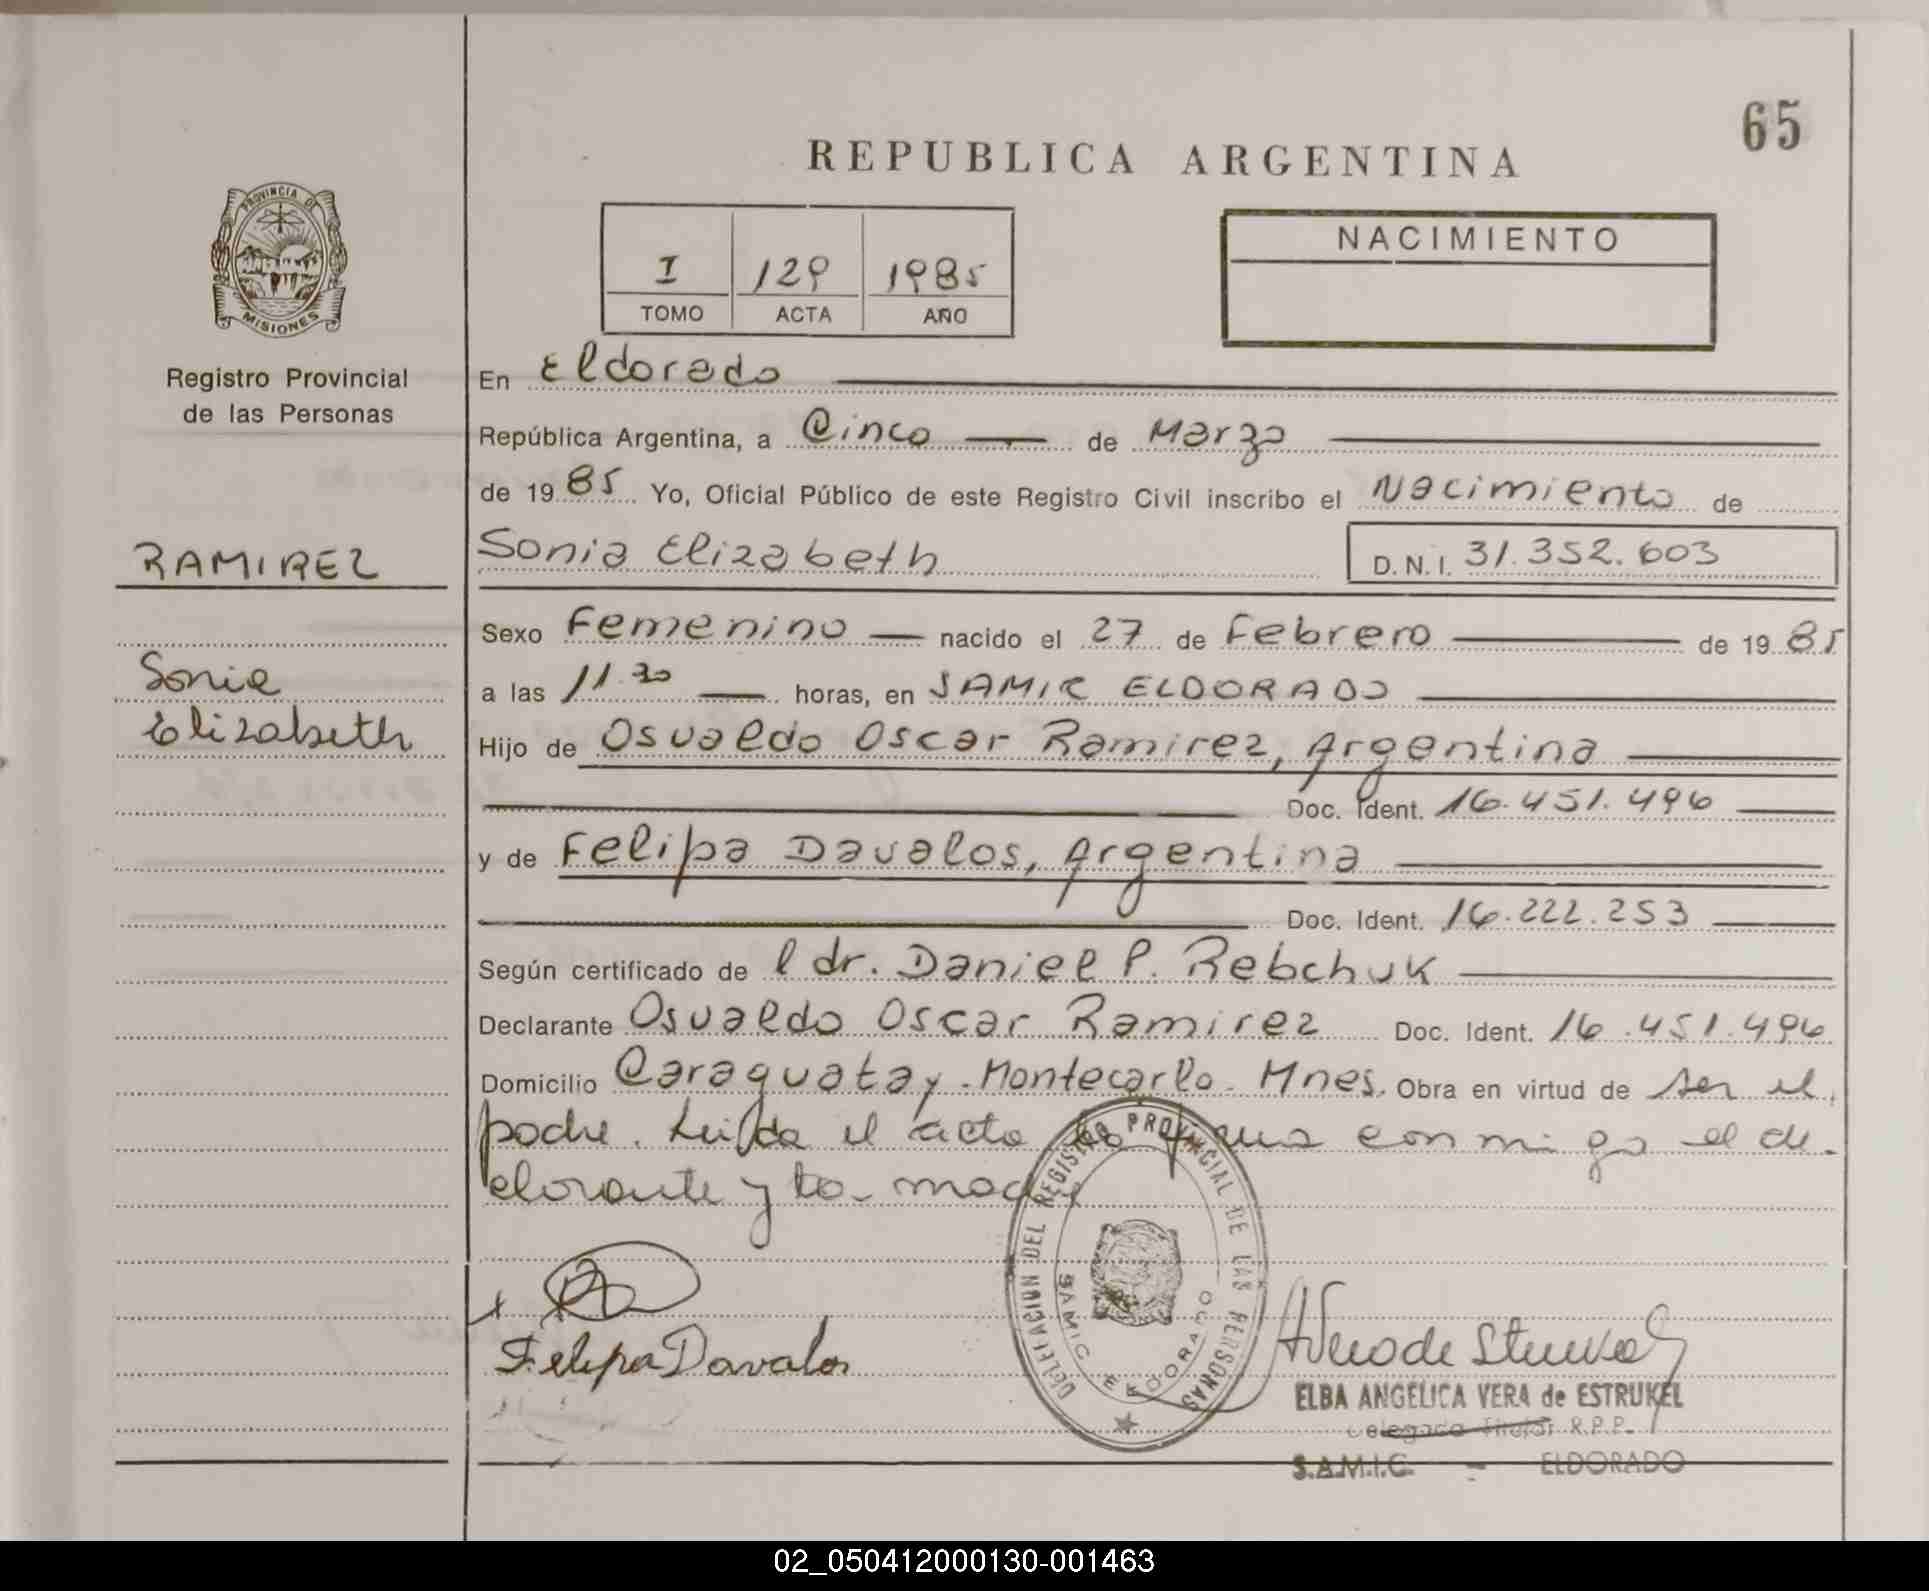 65
REPUBLICA ARGENTINA
PROVINCIA DE
MISIONES
Registro Provincial
de las Personas
I 129 1985
TOMO ACTA AÑO
NACIMIENTO
En Eldorado
República Argentina, a Cinco de Marzo
de 1985 Yo, Oficial Público de este Registro Civil inscribo el Nacimiento de
RAMIREZ
Sonia Elizabeth D.N.I. 31.352.603
Sexo Femenino nacido el 27 de Febrero de 1985
Sonia
a las 11.30 horas, en SAMIC ELDORADO
Elizabeth
Hijo de Osvaldo Oscar Ramirez, Argentina
Doc. Ident. 16.451.496
y de Felipa Davalos, Argentina
Doc. Ident. 16.222.253
Según certificado de l dr. Daniel P. Rebchuk
Declarante Osvaldo Oscar Ramirez Doc. Ident. 16.451.496
Domicilio Caraguatay - Montecarlo - Mnes. Obra en virtud de ser el
padre. Leída el acta la firma conmigo el de-
clarante y la madre
DELEGACION DEL REGISTRO PROVINCIAL DE LAS PERSONAS
SAMIC ELDORADO
Felipa Davalos
ELBA ANGELICA VERA de ESTRUKEL
Delegada Titular R.P.P.
S.A.M.I.C. - ELDORADO
02_050412000130-001463